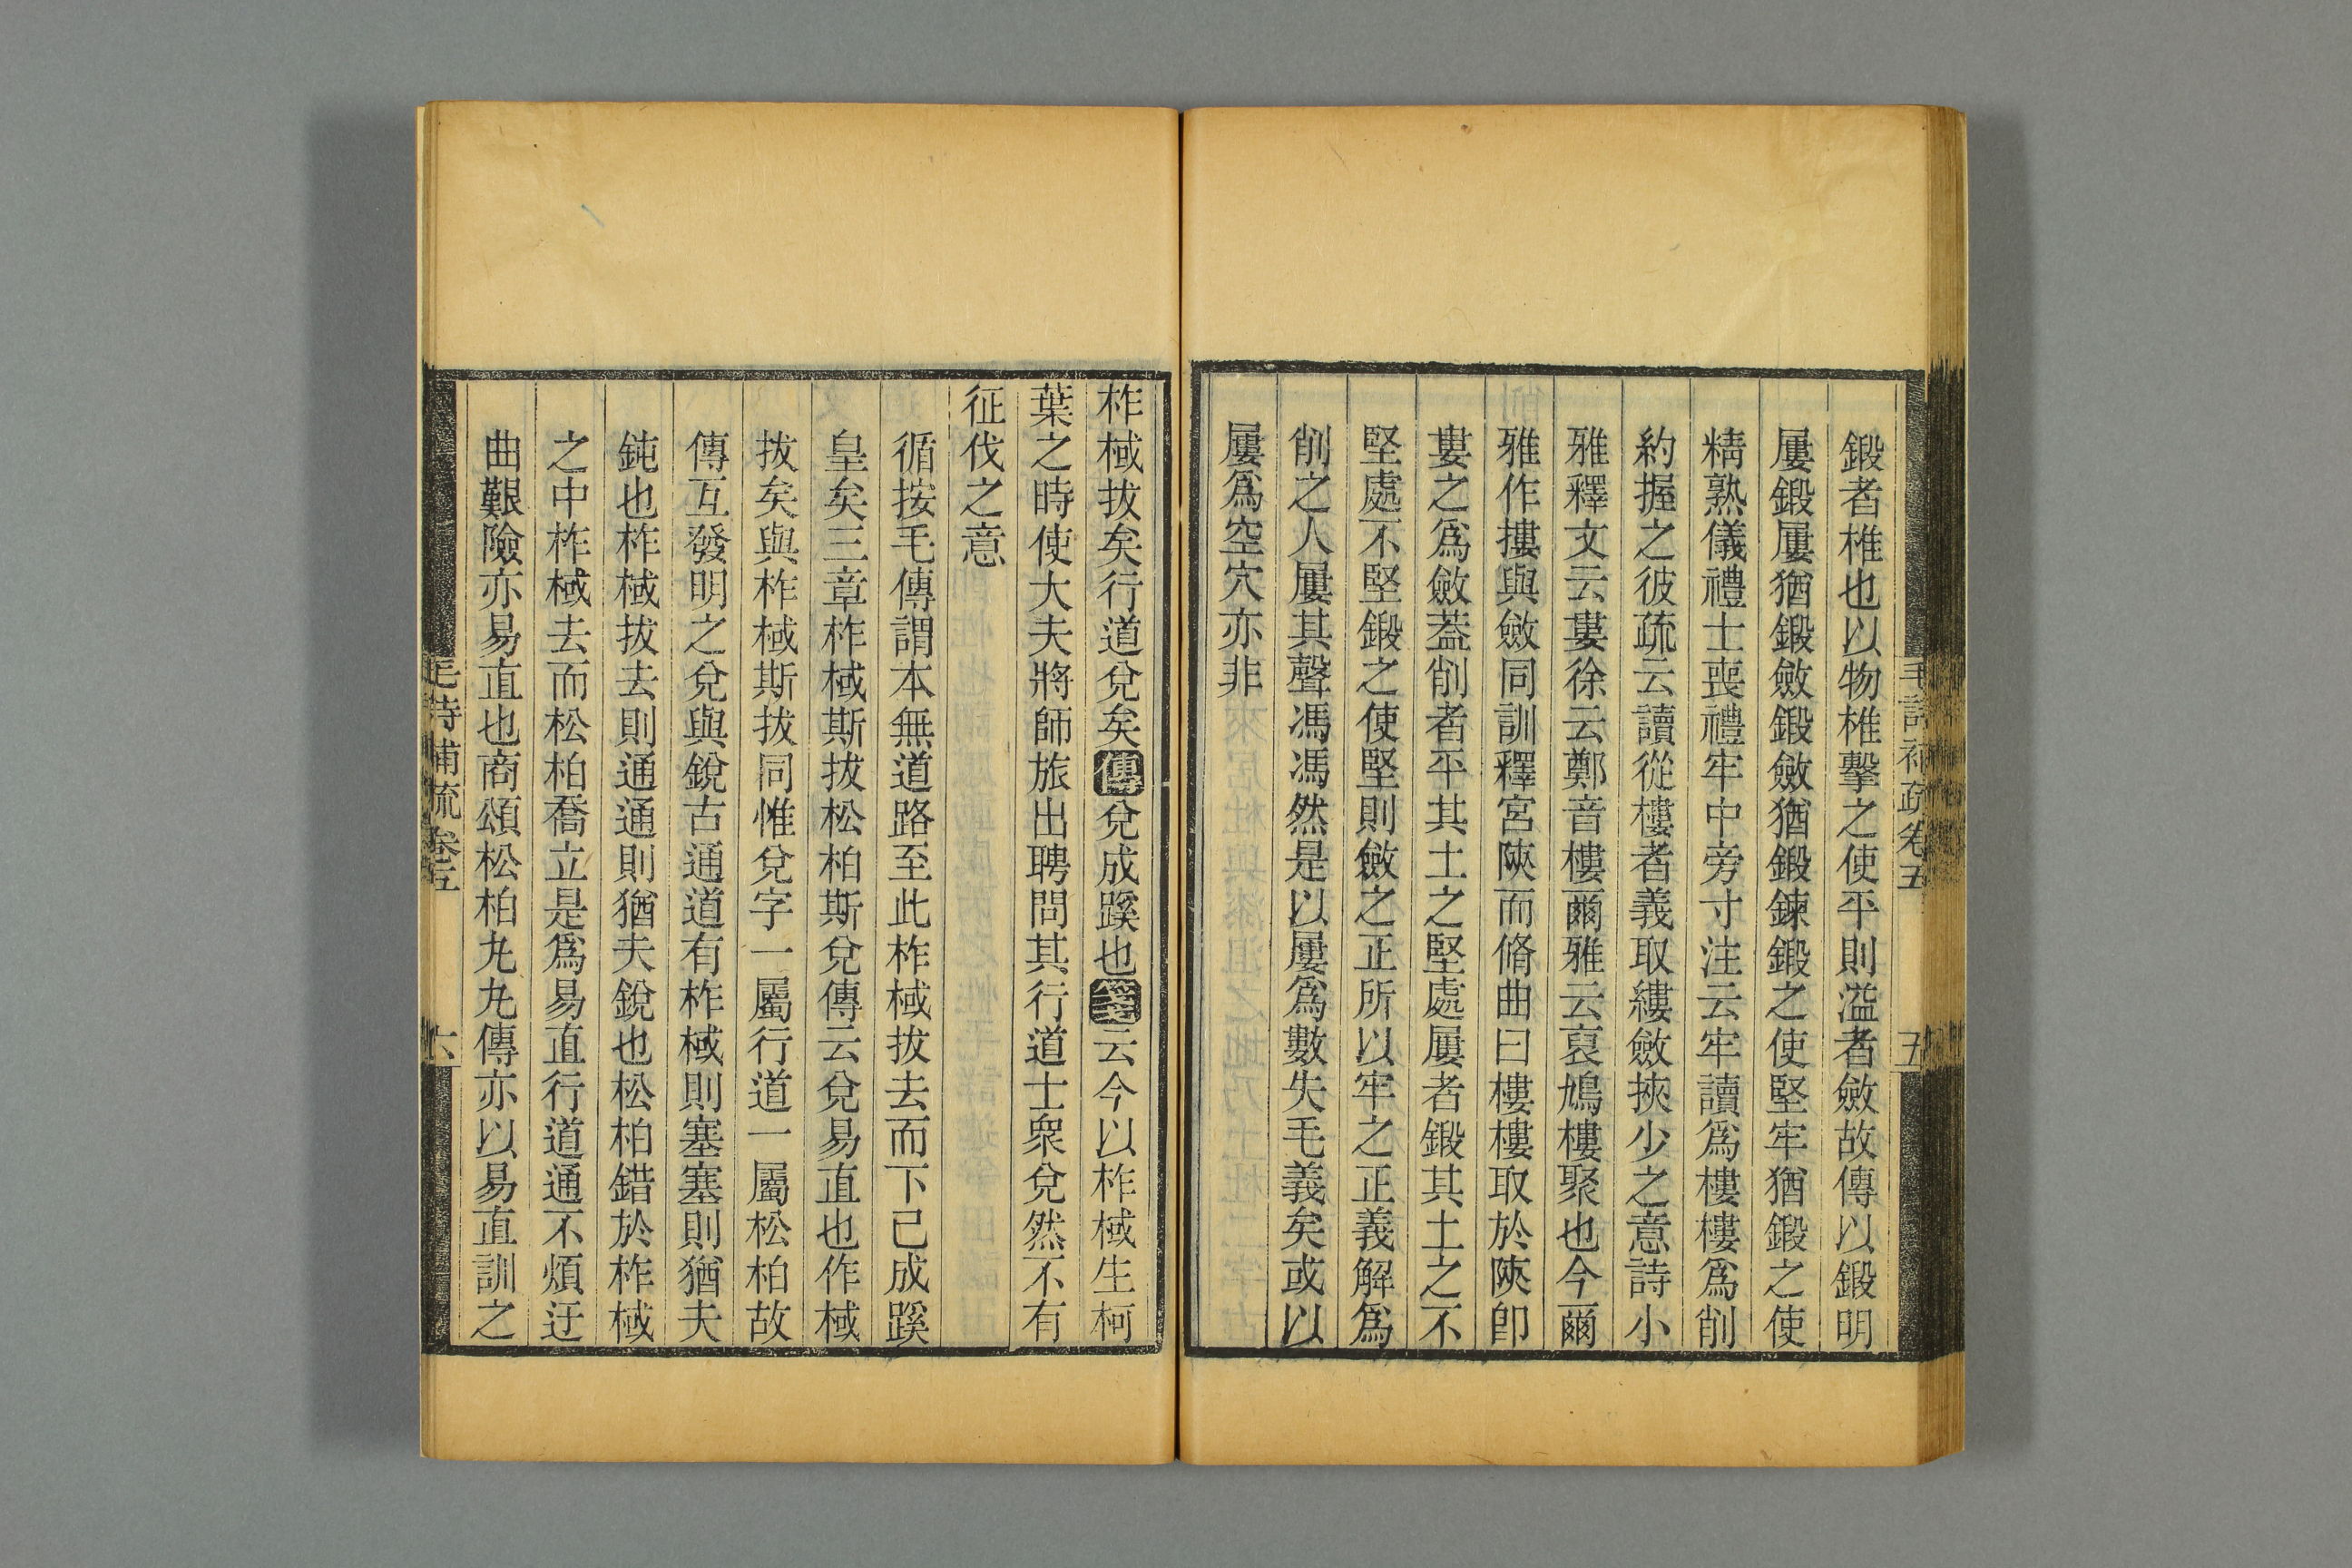 鍛者椎也以物椎擊之使平則溢者斂故傳以鍛明
屢鍛屢猶鍛斂鍛斂猶鍛鍊鍛之使堅牢猶鍛之使
精熟儀禮士喪禮牢中旁寸注云牢讀爲樓樓爲削
約握之彼疏云讀從樓者義取縷斂挾少之意詩小
雅釋文云婁徐云鄭音樓爾雅云裒鳩樓聚也今爾
雅作摟與斂同訓釋宮陝而脩曲曰樓樓取於陝卽
婁之爲斂葢削者平其土之堅處屢者鍛其土之不
堅處不堅鍛之使堅則斂之正所以牢之正義解爲
削之人屢其聲馮馮然是以屢爲數失毛義矣或以
屢爲空穴亦非
毛詩補疏卷五
五
柞棫拔矣行道兌矣傳兌成蹊也箋云今以柞棫生柯
葉之時使大夫將師旅出聘問其行道士衆兌然不有
征伐之意
循按毛傳謂本無道路至此柞棫拔去而下已成蹊
皇矣三章柞棫斯拔松柏斯兌傳云兌易直也作棫
拔矣與柞棫斯拔同惟兌字一屬行道一屬松柏故
傳互發明之兌與銳古通道有柞棫則塞塞則猶夫
鈍也柞棫拔去則通通則猶夫銳也松柏錯於柞棫
之中柞棫去而松柏喬立是爲易直行道通不煩迂
曲艱險亦易直也商頌松柏九九傳亦以易直訓之
毛詩補疏卷五
六